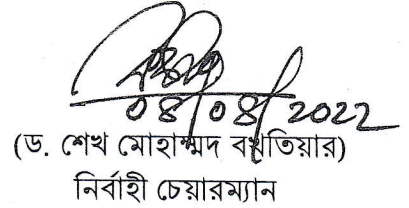 08/08/2022
(ড. শেখ মোহাম্মদ বখতিয়ার)
নির্বাহী চেয়ারম্যান